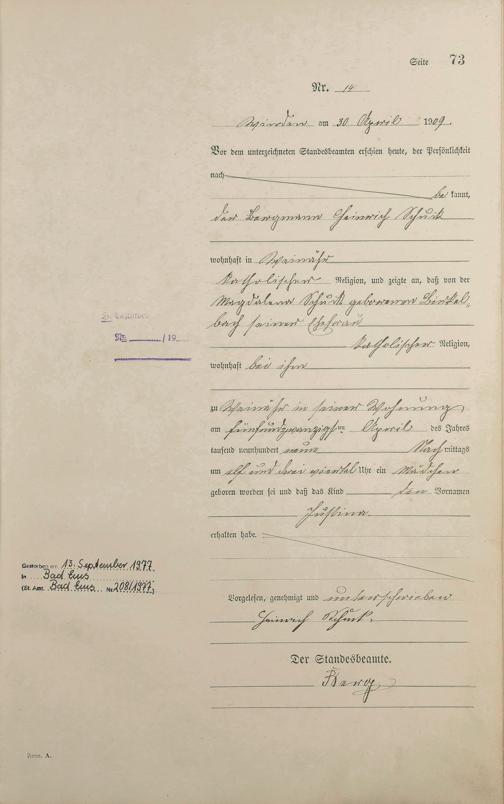 Seite 73
Nr. 14
Winden am 30 April 1909.
Vor dem unterzeichneten Standesbeamten erschien heute, der Persönlichkeit
nach
be kannt,
der Bergmann Heinrich Schuck
wohnhaft in Weinähr
katholischer Religion, und zeigte an, daß von der
Magdalena Schuck geborenen Birkel-
bach seiner Ehefrau
katholischer Religion,
wohnhaft bei ihm
zu Weinähr in seiner Wohnung
am fünfundzwanzigsten April des Jahres
tausend neunhundert neun Nach mittags
um elf und drei viertel Uhr ein Mädchen
geboren worden sei und daß das Kind den Vornamen
Justina
erhalten habe.
Vorgelesen, genehmigt und unterschrieben
Heinrich Schuck.
Der Standesbeamte.
Berg
/19
Gestorben am 13. September 1977
in Bad Ems
(St. Amt Bad Ems Nr. 208/1977)
Form. A.